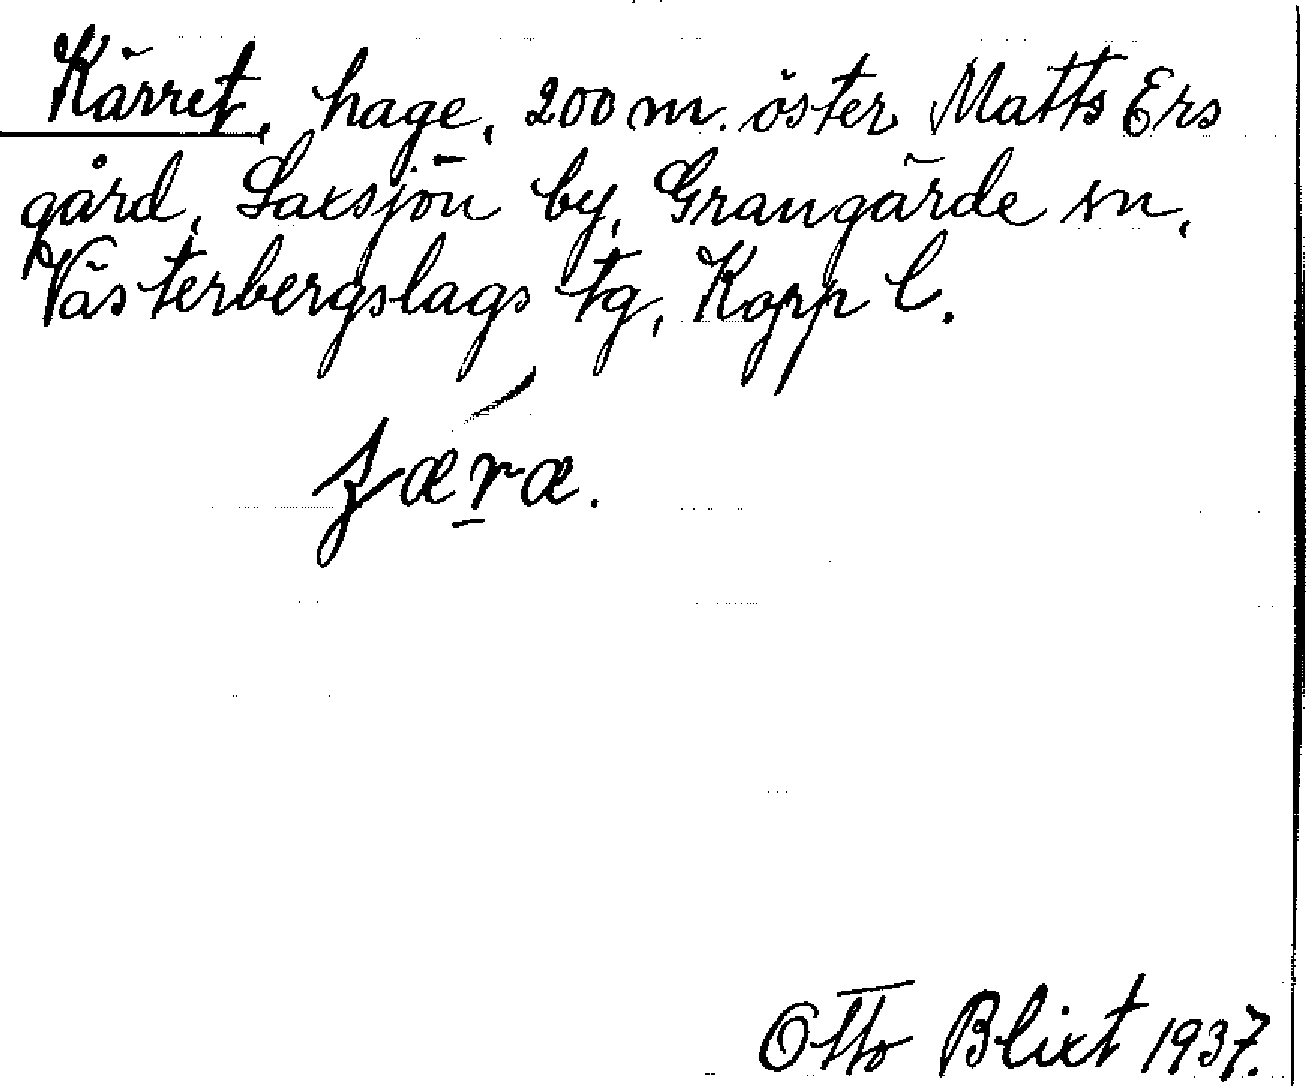 Kärret, hage, 200 m. öster Matts Ers
gård, Saxsjön by, Grangärde sn,
Västerbergslags tg, Kopp l.
Otto Blixt 1937.